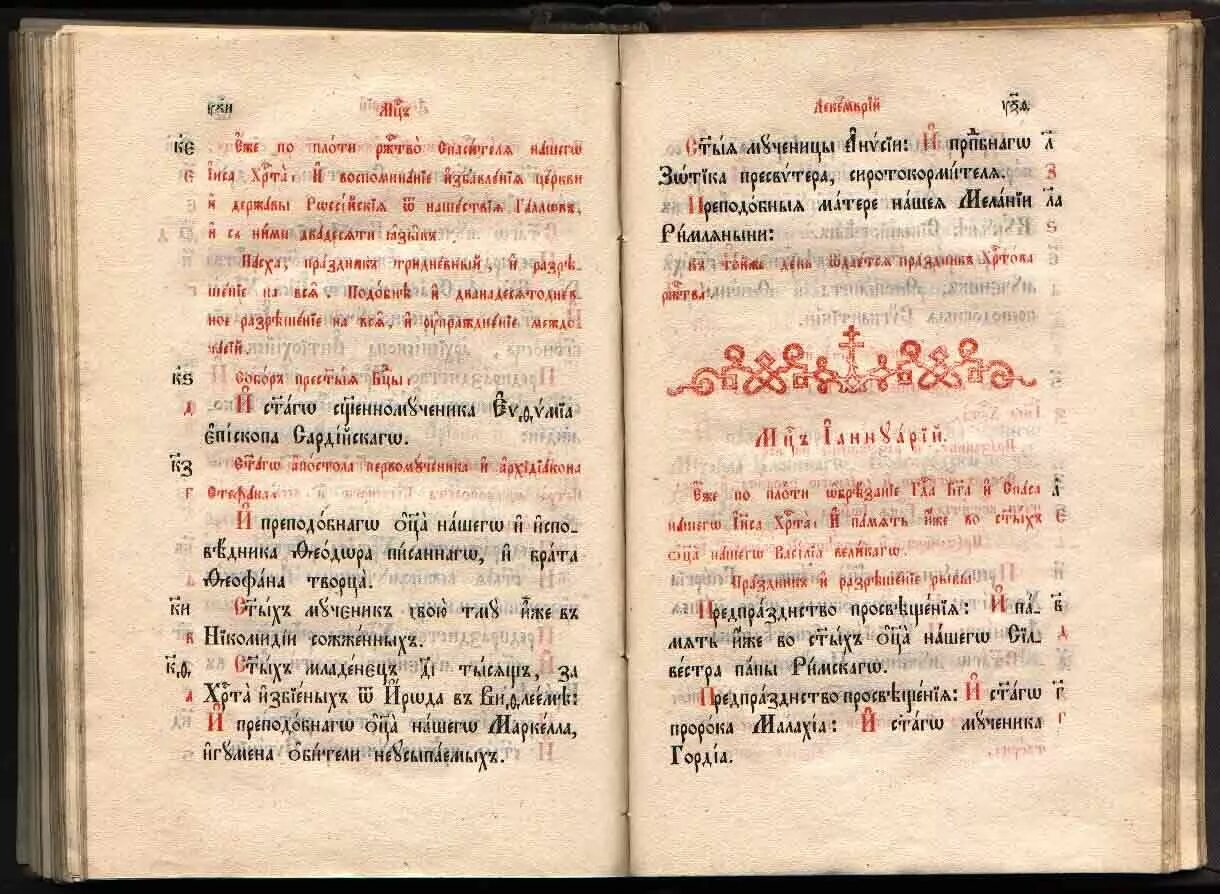 Мц҃ъ
к҃е Є҆́же по пло́ти ржⷭ҇тво̀ Спаси́телѧ на́шегѡ
є І҆и҃са Хрⷭ҇та̀: И҆ воспомина́нїе и҆збавле́нїѧ це́ркви
и҆ держа́вы Рѡссі́йскїѧ ѿ наше́ствїѧ Га́ллѡвъ,
и҆ съ ни́ми двадесѧтѝ ꙗ҆зы́къ.
Па́сха, пра́здникъ тридне́вный, и҆ разрѣ-
ше́нїе на всѧ̑. Подо́бнѣ и҆ дванадесѧтодне́в
ное разрѣше́нїе на всѧ̑, и҆ ᲂу҆праздне́нїе междо
часі́й.
к҃ѕ Собо́ръ прест҃ы́ѧ Бц҃ы.
д И҆ ст҃а́гѡ сщ҃енномꙋ́ченика Є҆ѵѳѵ́мїа
є҆пі́скопа Сарді́йскагѡ.
к҃з Ст҃а́гѡ а҆по́стола первомꙋ́ченика и҆ а҆рхїдїа́кона
г Стефа́на.
И҆ преподо́бнагѡ ѻ҆ц҃а̀ на́шегѡ и҆ и҆спо-
вѣ́дника Ѳео́дѡра пи́саннагѡ, и҆ бра́та
Ѳеофа́на творца̀.
к҃и Ст҃ы́хъ мꙋ́ченикъ двою̀ тмꙋ̀ и҆̀же въ
в Нїкомиді́и сожже́нныхъ.
к҃ѳ Ст҃ы́хъ младе́нецъ д҃і ты́сѧщъ, за
а Хрⷭ҇та̀ и҆збїе́ныхъ ѿ И҆́рѡда въ Виѳлее́мѣ:
И҆ преподо́бнагѡ ѻ҆ц҃а̀ на́шегѡ Марке́лла,
и҆гꙋ́мена ѻ҆би́тели неꙋсыпа́емыхъ.
Декемврїй
Ст҃ы́ѧ мꙋ́ченицы А҆нѵсі́и: И҆ прпⷣбнагѡ л҃
Зѡ́тїка пресвѵ́тера, сиротокорми́телѧ. з
Преподо́бныѧ ма́тере на́шеѧ Мела́нїи л҃а
Ри́млѧныни: ѕ
Въ то́йже де́нь ѿдае́тсѧ пра́здникъ Хрⷭ҇то́ва
ржⷭ҇тва̀.
Мц҃ъ І҆аннꙋа́рїй.
Є҆́же по пло́ти ѡ҆брѣ́занїе Гдⷭ҇а Бг҃а и҆ Спа́са а҃
на́шегѡ І҆и҃са Хрⷭ҇та̀: И҆ па́мѧть и҆́же во ст҃ы́хъ є
ѻ҆ц҃а̀ на́шегѡ Васі́лїа вели́кагѡ.
Пра́здникъ и҆ разрѣше́нїе ры́бы
Предпра́зднство просвѣще́нїѧ: И҆ па́- в҃
мѧть и҆́же во ст҃ы́хъ ѻ҆ц҃а̀ на́шегѡ Сїл- д
ве́стра па́пы Ри́мскагѡ.
Предпра́зднство просвѣще́нїѧ: И҆ ст҃а́гѡ г҃
проро́ка Мала́хїа: И҆ ст҃а́гѡ мꙋ́ченика г
Го́рдїа.